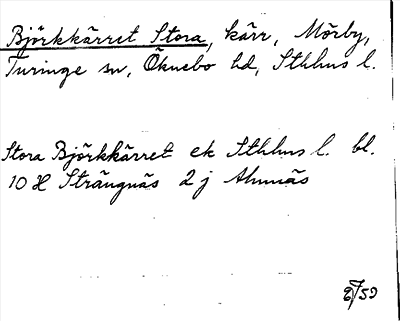 Björkkärret Stora, kärr, Mörby,
Turinge sn, Öknebo hd, Sthlms l.
Stora Björkkärret ek Sthlms l. bl.
10 H Strängnäs 2 j Almnäs